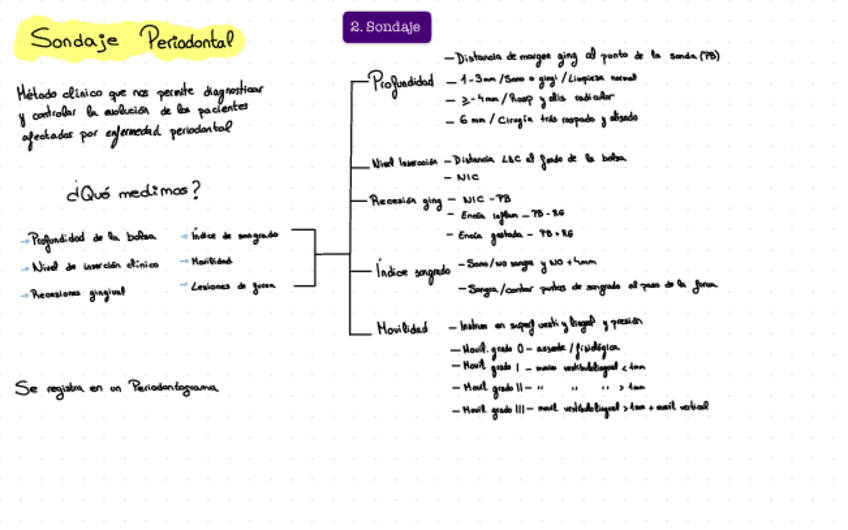 Sondaje Periodontal
Método clínico que nos permite diagnosticar
y controlar la evolución de los pacientes
afectados por enfermedad periodontal
¿Qué medimos?
→ Profundidad de la bolsa
→ Nivel de inserción clínico
→ Recesiones gingival
→ Índice de sangrado
→ Movilidad
→ Lesiones de furca
Se registra en un Periodontograma
2. Sondaje
Profundidad
- Distancia de margen ging al punto de la sonda (PB)
- 1-3mm / Sano o gingi / Limpieza normal
- ≥-4mm / Rasp y alis radicular
- 6 mm / Cirugía trás raspado y alisado
Nivel Inserción
- Distancia LAC al fondo de la bolsa
- NIC
Recesión ging
- NIC - PB
- Encía inflam - PB - RG
- Encía - PB + RG
Índice sangrado
- Sano/no sangra y NO +4mm
- Sangra/contar puntos de sangrado al paso de la
Movilidad
- Instrum en superf vesti y lingual y presión
- Movil. grado 0 - ausente / fisiológica
- Movil grado I - vestibulolingual < 1mm
- Movil grado II - " " " > 1mm
- Movil grado III - movil vestibulolingual > 1mm + movil vertical